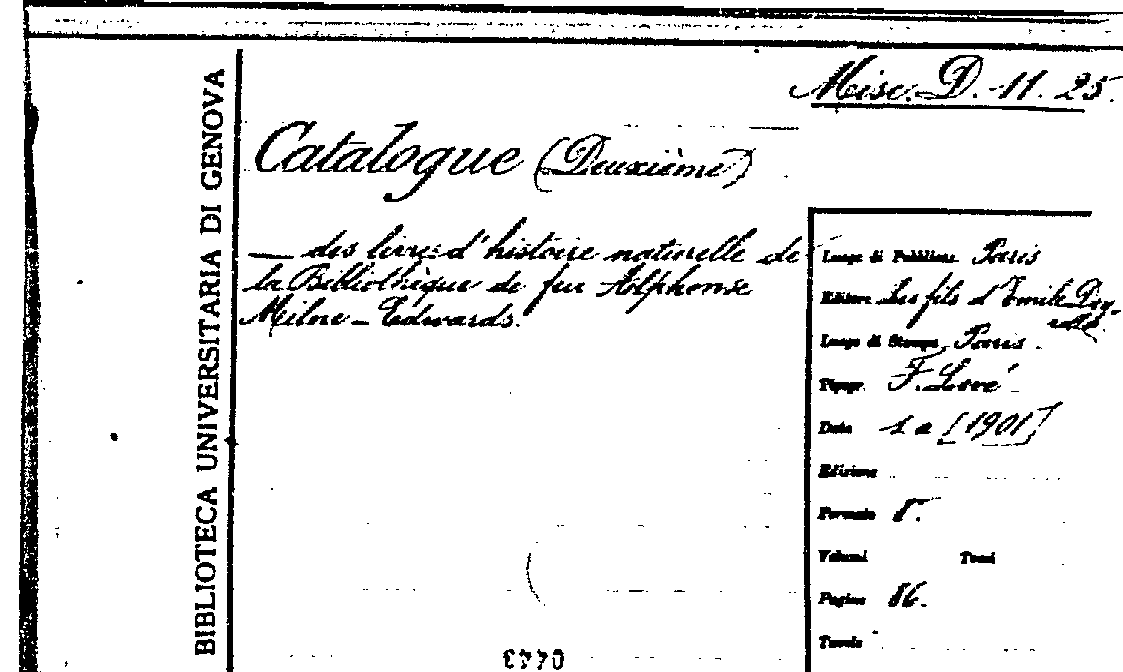 Misc. D. 11. 25.
BIBLIOTECA UNIVERSITARIA DI GENOVA
Catalogue (Deuxième)
— des livres d'histoire naturelle de
la Bibliothèque de feu Alphonse
Milne-Edwards.
Luogo di Pubblicaz. Paris
Editore Les fils d'Emile Dey-
rolle.
Luogo di Stampa Paris.
Tipogr. F. Levé
Data s a [1901]
Edizione
Formato 8°.
Volumi Tomi
Pagine 86.
Tavole